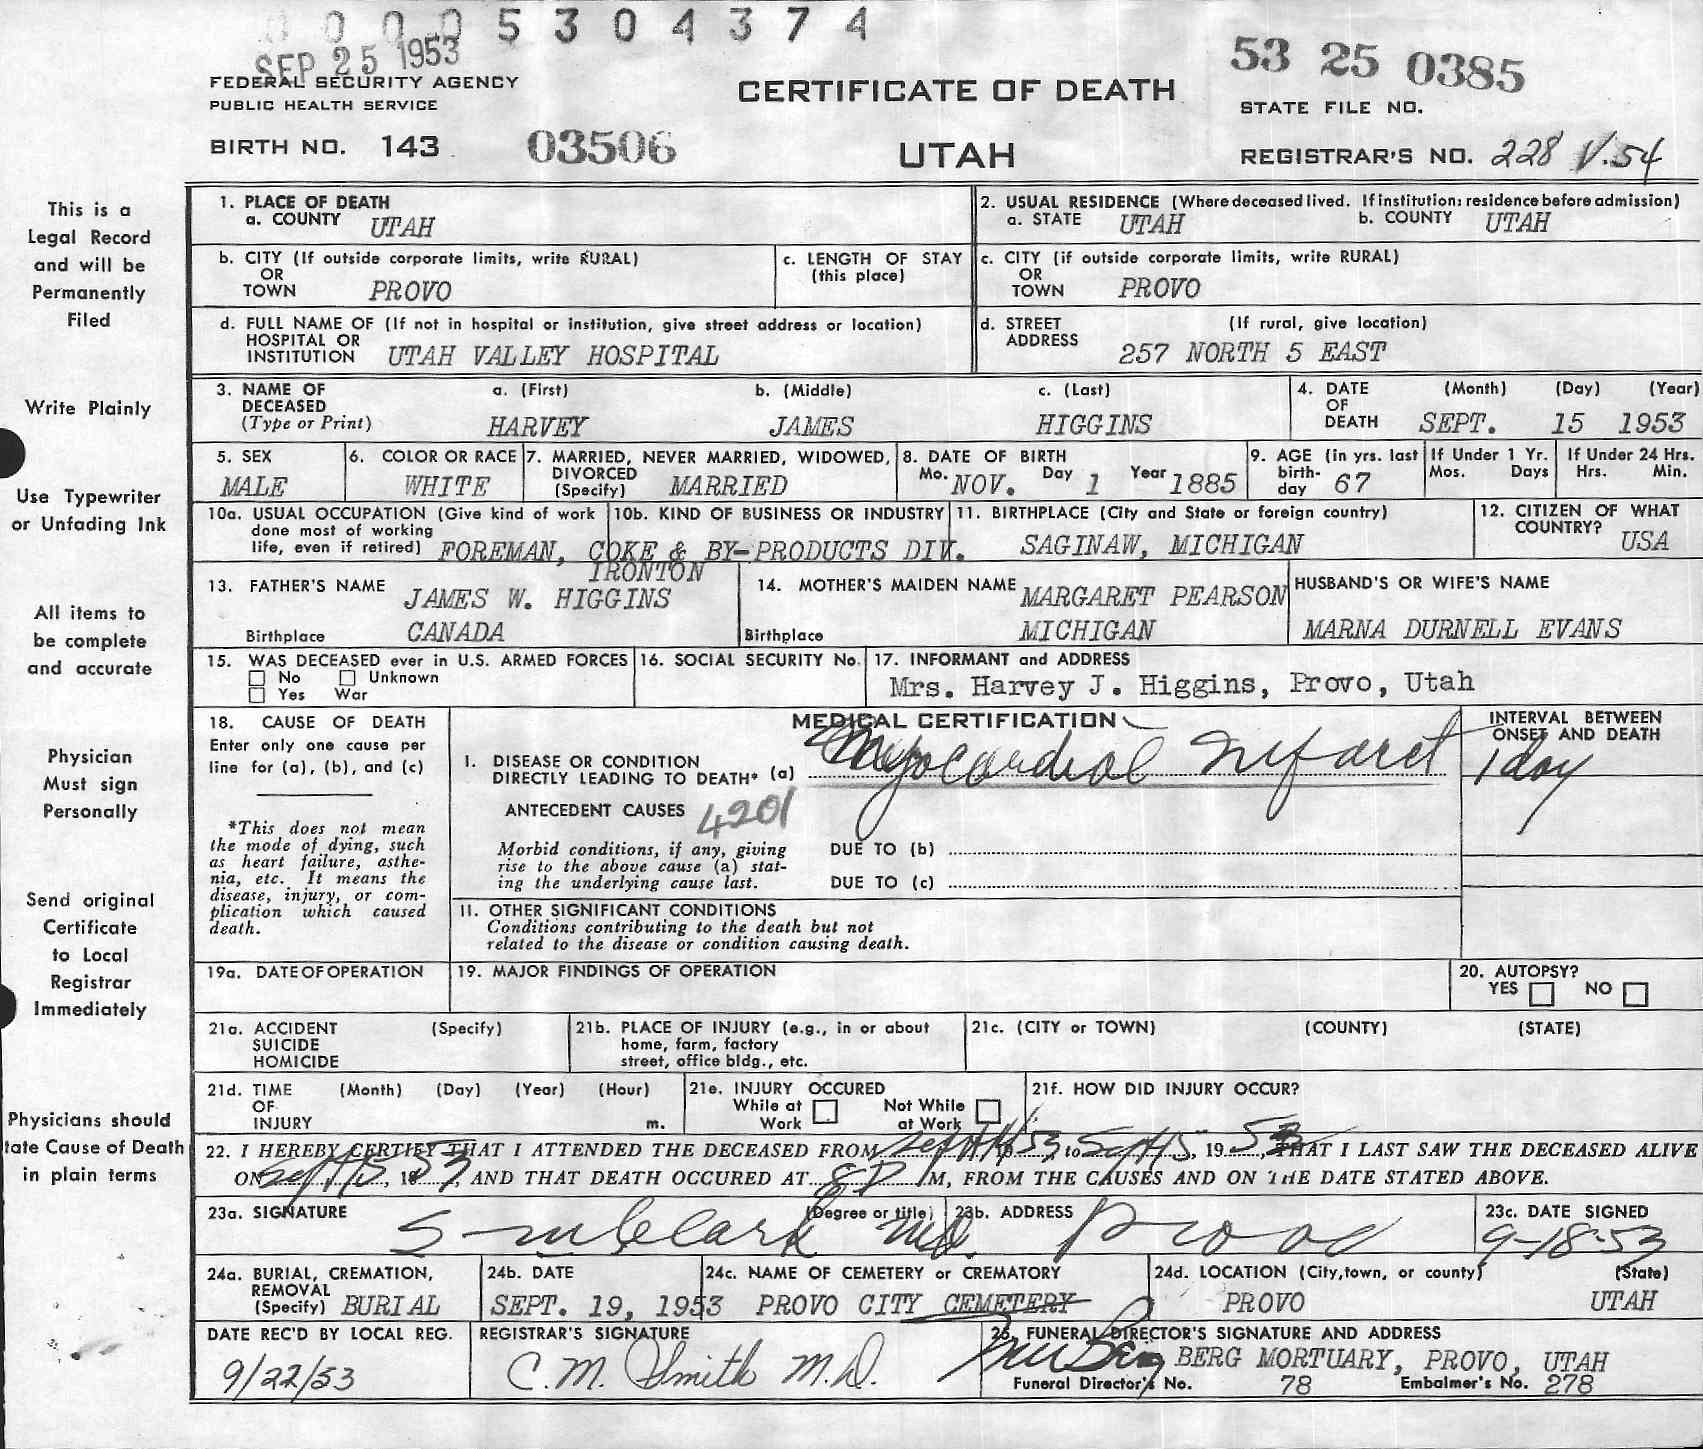 0 0 0 0 5 3 0 4 3 7 4
SEP 25 1953
53 25 0385
FEDERAL SECURITY AGENCY
PUBLIC HEALTH SERVICE
CERTIFICATE OF DEATH
STATE FILE NO.
BIRTH NO. 143 03506
UTAH
REGISTRAR'S NO. 228 V.54
This is a
Legal Record
and will be
Permanently
Filed
Write Plainly
Use Typewriter
or Unfading Ink
All items to
be complete
and accurate
Physician
Must sign
Personally
Send original
Certificate
to Local
Registrar
Immediately
Physicians should
tate Cause of Death
in plain terms
1. PLACE OF DEATH
a. COUNTY UTAH
2. USUAL RESIDENCE (Where deceased lived. If institution: residence before admission)
a. STATE UTAH b. COUNTY UTAH
b. CITY (If outside corporate limits, write RURAL)
OR
TOWN PROVO
c. LENGTH OF STAY
(this place)
c. CITY (if outside corporate limits, write RURAL)
OR
TOWN PROVO
d. FULL NAME OF (If not in hospital or institution, give street address or location)
HOSPITAL OR
INSTITUTION UTAH VALLEY HOSPITAL
d. STREET (If rural, give location)
ADDRESS
257 NORTH 5 EAST
3. NAME OF a. (First) b. (Middle) c. (Last)
DECEASED
(Type or Print) HARVEY JAMES HIGGINS
4. DATE (Month) (Day) (Year)
OF
DEATH SEPT. 15 1953
5. SEX
MALE
6. COLOR OR RACE
WHITE
7. MARRIED, NEVER MARRIED, WIDOWED,
DIVORCED
(Specify) MARRIED
8. DATE OF BIRTH
Mo. NOV. Day 1 Year 1885
9. AGE (in yrs. last
birth-
day 67
If Under 1 Yr.
Mos. Days
If Under 24 Hrs.
Hrs. Min.
10a. USUAL OCCUPATION (Give kind of work
done most of working
life, even if retired) FOREMAN, COKE & BY-PRODUCTS DIV.
IRONTON
10b. KIND OF BUSINESS OR INDUSTRY
11. BIRTHPLACE (City and State or foreign country)
SAGINAW, MICHIGAN
12. CITIZEN OF WHAT
COUNTRY? USA
13. FATHER'S NAME
JAMES W. HIGGINS
Birthplace CANADA
14. MOTHER'S MAIDEN NAME MARGARET PEARSON
Birthplace MICHIGAN
HUSBAND'S OR WIFE'S NAME
MARNA DURNELL EVANS
15. WAS DECEASED ever in U.S. ARMED FORCES
No Unknown
Yes War
16. SOCIAL SECURITY No.
17. INFORMANT and ADDRESS
Mrs. Harvey J. Higgins, Provo, Utah
18. CAUSE OF DEATH
Enter only one cause per
line for (a), (b), and (c)
*This does not mean
the mode of dying, such
as heart failure, asthe-
nia, etc. It means the
disease, injury, or com-
plication which caused
death.
MEDICAL CERTIFICATION
I. DISEASE OR CONDITION
DIRECTLY LEADING TO DEATH* (a) Myocardial Infarct
INTERVAL BETWEEN
ONSET AND DEATH
1 day
ANTECEDENT CAUSES 4201
Morbid conditions, if any, giving
rise to the above cause (a) stat-
ing the underlying cause last.
DUE TO (b)
DUE TO (c)
11. OTHER SIGNIFICANT CONDITIONS
Conditions contributing to the death but not
related to the disease or condition causing death.
19a. DATE OF OPERATION
19. MAJOR FINDINGS OF OPERATION
20. AUTOPSY?
YES NO
21a. ACCIDENT (Specify)
SUICIDE
HOMICIDE
21b. PLACE OF INJURY (e.g., in or about
home, farm, factory
street, office bldg., etc.
21c. (CITY or TOWN) (COUNTY) (STATE)
21d. TIME (Month) (Day) (Year) (Hour)
OF
INJURY m.
21e. INJURY OCCURED
While at Not While
Work at Work
21f. HOW DID INJURY OCCUR?
22. I HEREBY CERTIFY THAT I ATTENDED THE DECEASED FROM Sept 14 53, to Sept 15, 19 53 THAT I LAST SAW THE DECEASED ALIVE
ON Sept 15, 19 53, AND THAT DEATH OCCURED AT 8 P M, FROM THE CAUSES AND ON THE DATE STATED ABOVE.
23a. SIGNATURE (Degree or title)
Clark MD.
23b. ADDRESS
Provo
23c. DATE SIGNED
9-18-53
24a. BURIAL, CREMATION,
REMOVAL
(Specify) BURIAL
24b. DATE
SEPT. 19, 1953
24c. NAME OF CEMETERY or CREMATORY
PROVO CITY CEMETERY
24d. LOCATION (City, town, or county) (State)
PROVO UTAH
DATE REC'D BY LOCAL REG.
9/22/53
REGISTRAR'S SIGNATURE
C. M. Smith M.D.
25. FUNERAL DIRECTOR'S SIGNATURE AND ADDRESS
Berg BERG MORTUARY, PROVO, UTAH
Funeral Director's No. 78 Embalmer's No. 278